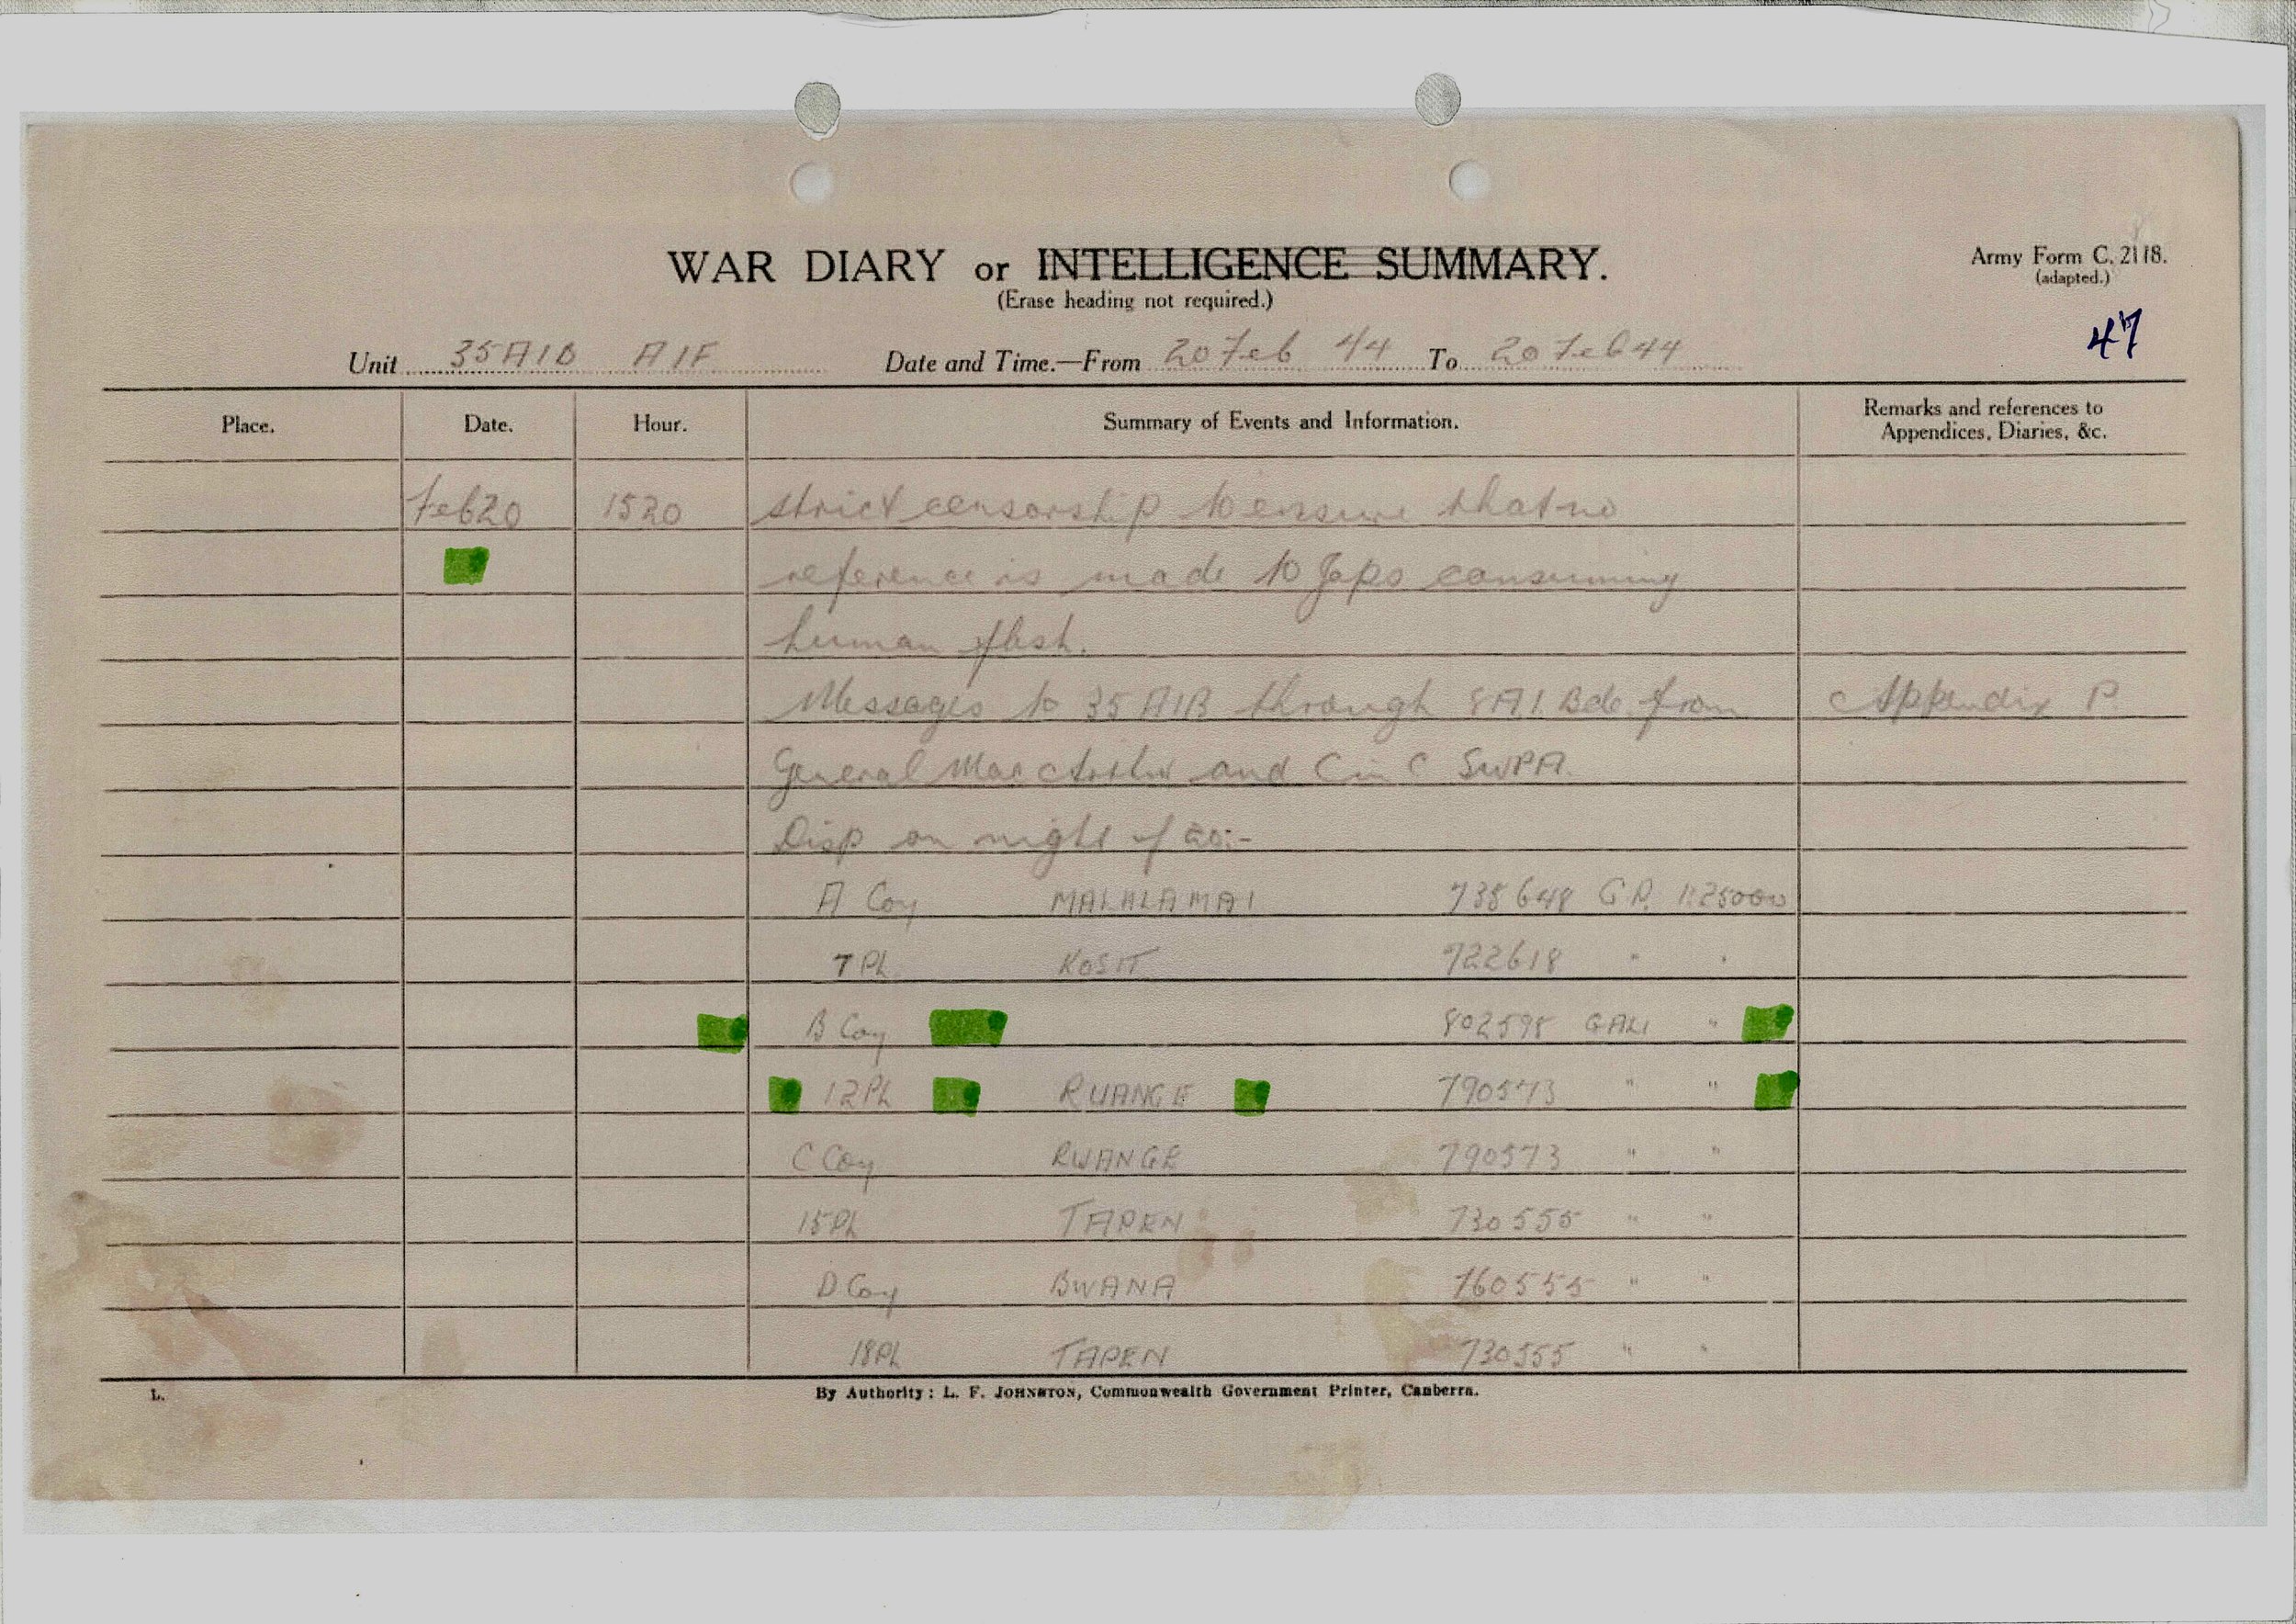 WAR DIARY or INTELLIGENCE SUMMARY.
(Erase heading not required.)
Army Form C. 2118.
(adapted.)
47
Unit 35 AIB AIF Date and Time.—From 20 Feb 44 To 20 Feb 44
Place. Date. Hour. Summary of Events and Information. Remarks and references to Appendices, Diaries, &c.
Feb 20 1520 strict censorship to ensure that no
reference is made to Japs consuming
human flesh.
Messages to 35 AIB through 8 A.I. Bde. from Appendix P.
General MacArthur and C in C SWPA.
Disp on night of 20:-
A Coy MALALAMAI 735648 G.R. 1:250000
7 Pl KOSIT 722618 " "
B Coy 802595 GALI "
12 Pl RUANGE 790573 " "
C Coy RWANGE 790573 " "
15 Pl TAPEN 730555 " "
D Coy BWANA 760555 " "
18 Pl TAPEN 730555 " "
L.
By Authority: L. F. JOHNSTON, Commonwealth Government Printer, Canberra.